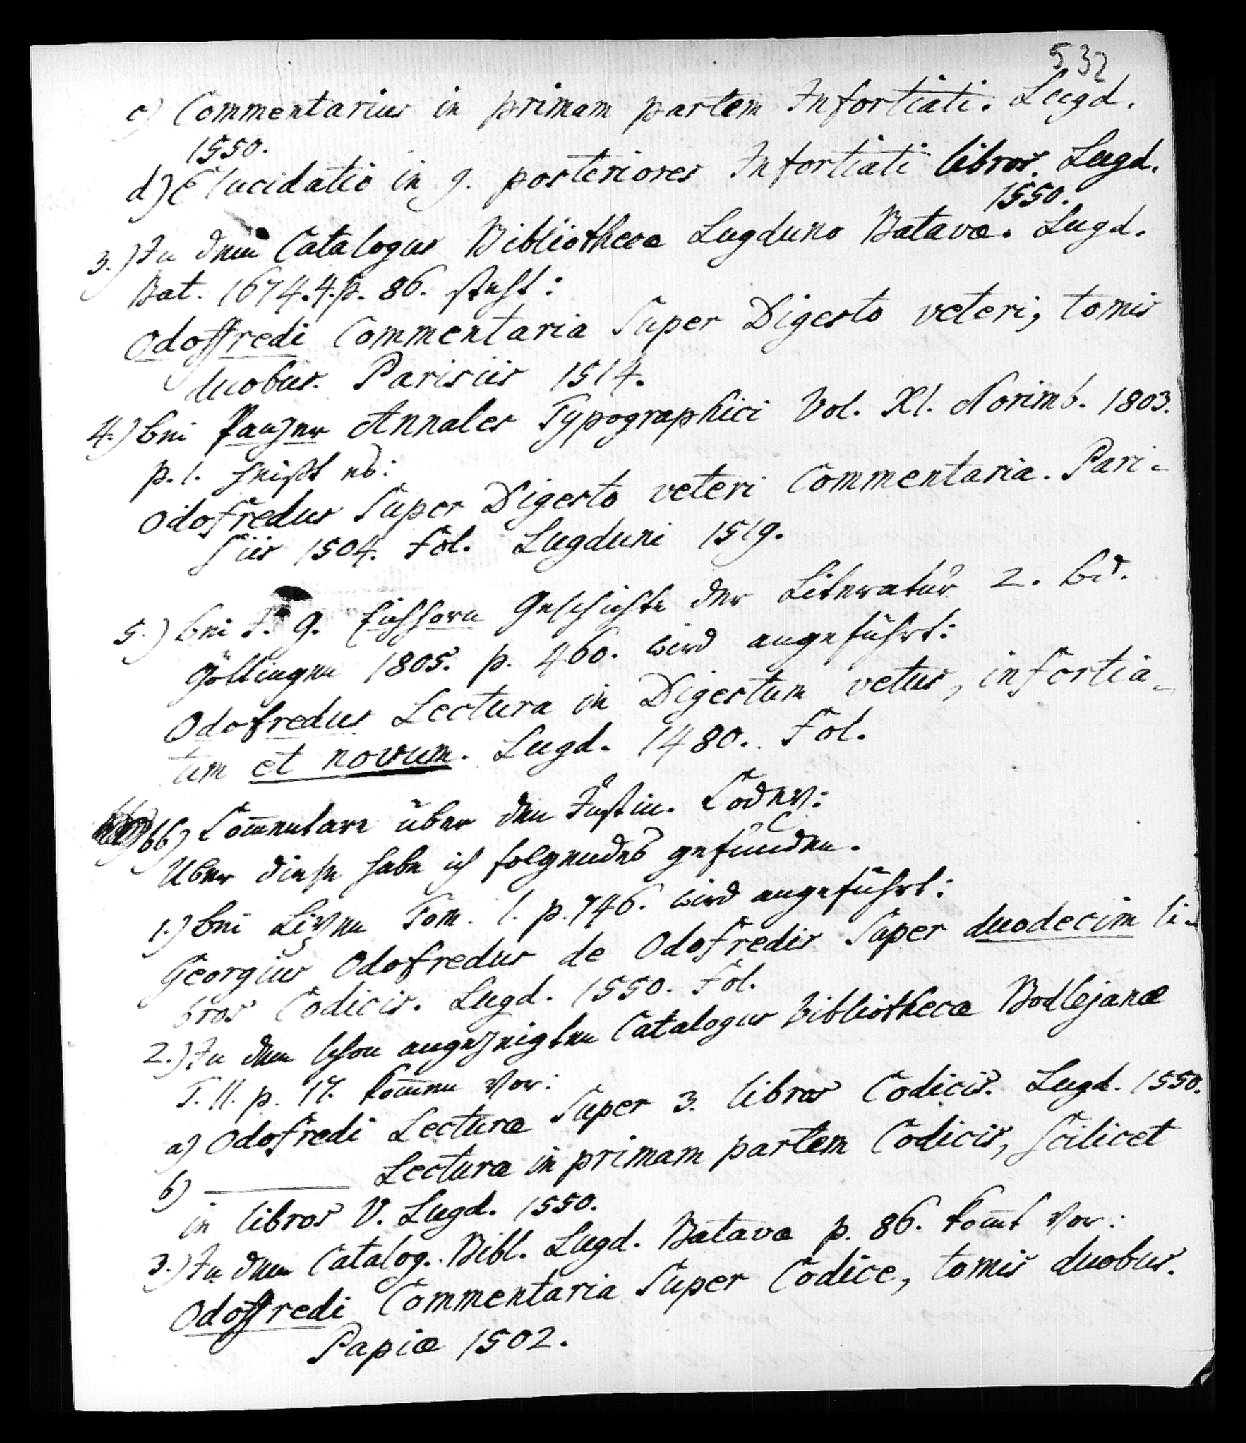 532
c) Commentarius in primam partem Infortiati. Lugd.
1550.
d) Elucidatio in 9. posteriores Infortiati libros. Lugd.
1550.
3.) In dem Catalogus Bibliothecæ Lugduno Batavæ. Lugd.
Bat. 1674. 4. p. 86. steht:
Odoffredi Commentaria Super Digesto veteri, tomis
duobus. Parisiis 1514.
4.) bei Panzer Annales Typographici Vol. XI. Norimb. 1803.
p. 1. heißt es:
Odofredus Super Digesto veteri Commentaria. Pari-
siis 1504. Fol. Lugduni 1519.
5.) bei I. G. Eichhorn Geschichte der Literatur 2. Bd.
Göttingen 1805. p. 460. wird angeführt:
Odofredus Lectura in Digestum vetus, infortia-
tum et novum. Lugd. 1480. Fol.
bb) Com̄entare über den Justin. Codex:
Über diese habe ich folgendes gefunden.
1.) bei Lipen Tom. 1. p. 746. wird angeführt:
Georgius Odofredus de Odofredis Super duodecim li-
bros Codicis. Lugd. 1550. Fol.
2.) In dem schon angezeigten Catalogus bibliothecæ Bodlejanæ
T. II. p. 17. kom̄en vor:
a) Odofredi Lecturæ Super 3. libros Codicis. Lugd. 1550.
b) ——— Lecturæ in primam partem Codicis, Scilicet
in libros V. Lugd. 1550.
3.) In dem Catalog. Bibl. Lugd. Batavæ p. 86. kom̄t vor:
Odoffredi Commentaria Super Codice, tomis duobus.
Papiæ 1502.